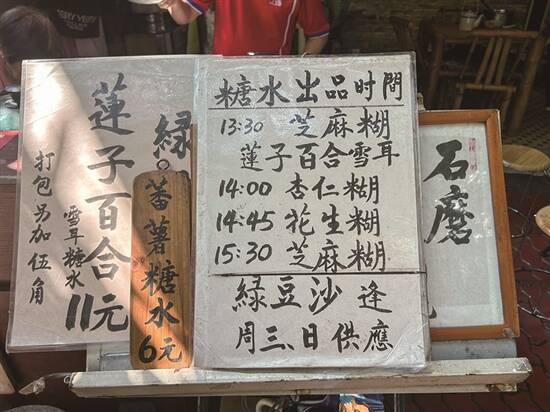 蓮子百合
雪耳糖水
11元
打包另加伍角
綠
蕃薯糖水
6元
糖水出品时間
13:30 芝麻糊
蓮子百合雪耳
14:00 杏仁糊
14:45 花生糊
15:30 芝麻糊
綠豆沙逢
周三、日供應
石磨